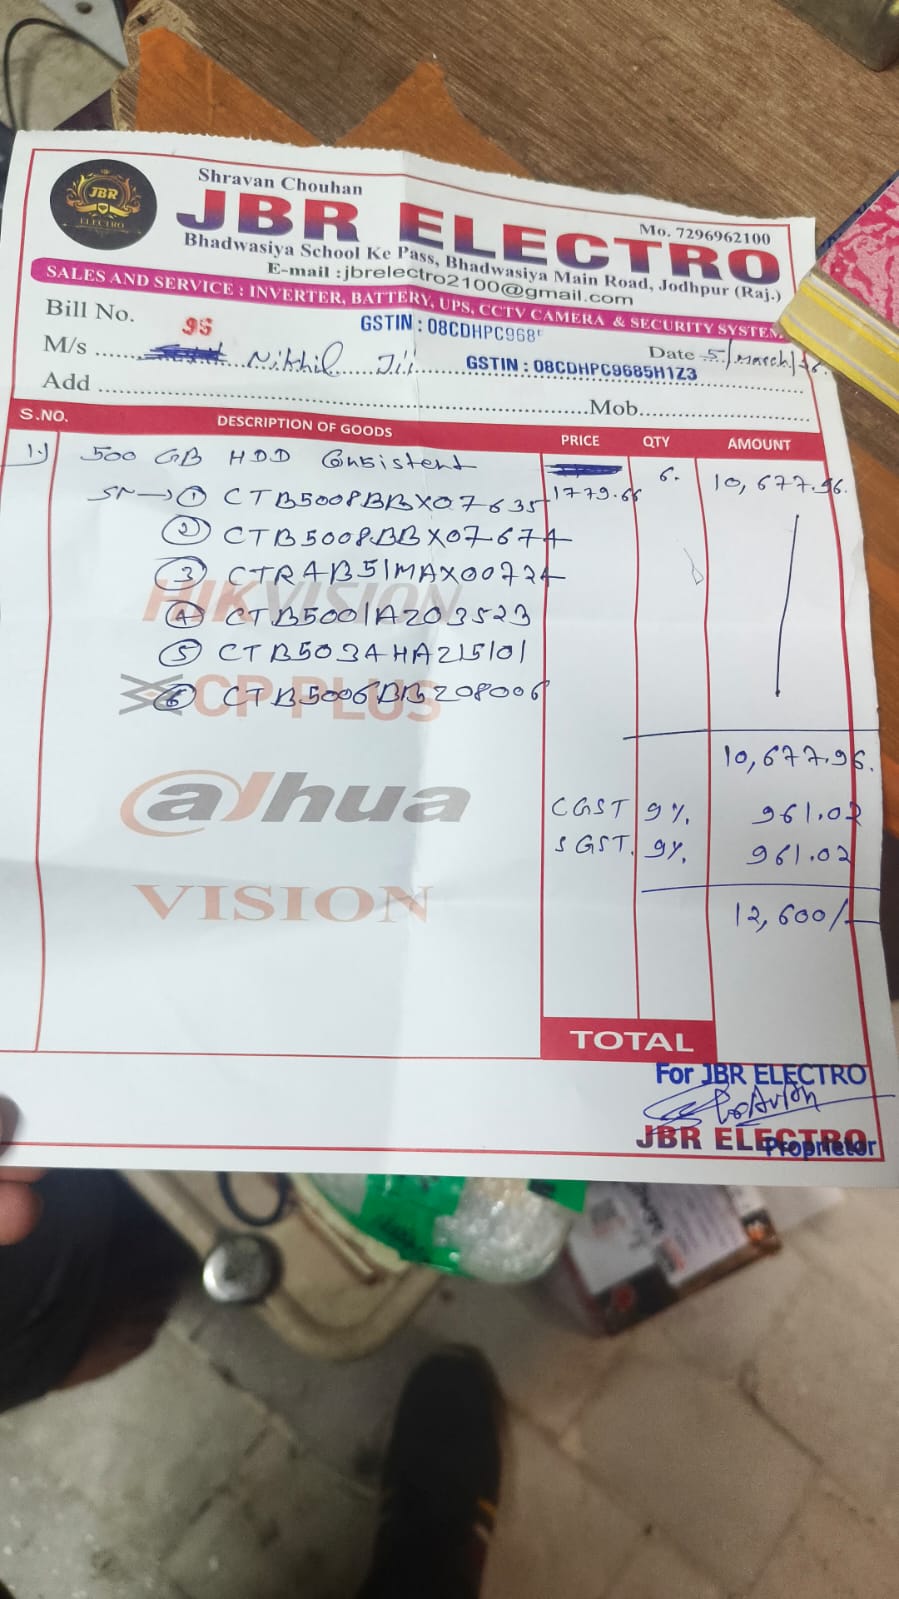 JBR
ELECTRO
Shravan Chouhan
Mo. 7296962100
JBR ELECTRO
Bhadwasiya School Ke Pass, Bhadwasiya Main Road, Jodhpur (Raj.)
E-mail :jbrelectro2100@gmail.com
SALES AND SERVICE : INVERTER, BATTERY, UPS, CCTV CAMERA & SECURITY SYSTEM
Bill No. 95 GSTIN : 08CDHPC968
M/s Nikhil Ji Date 5/March/
GSTIN : 08CDHPC9685H1Z3
Add Mob.
S.NO. DESCRIPTION OF GOODS PRICE QTY AMOUNT
1.) 500 GB HDD Consistent 1779.66 6. 10,677.96.
SN→ ① CTB5008BBX07635
② CTB5008BBX07674
③ CTRAB51MAX00724
④ CTB5001AZ03523
⑤ CTB5034HAZ15101
⑥ CTB5006BBZ08006
HIKVISION
CP PLUS
10,677.96.
alhua
CGST 9%. 961.02
SGST. 9%. 961.02
VISION
12,600/-
TOTAL
For JBR ELECTRO
JBR ELECTRO
Proprietor